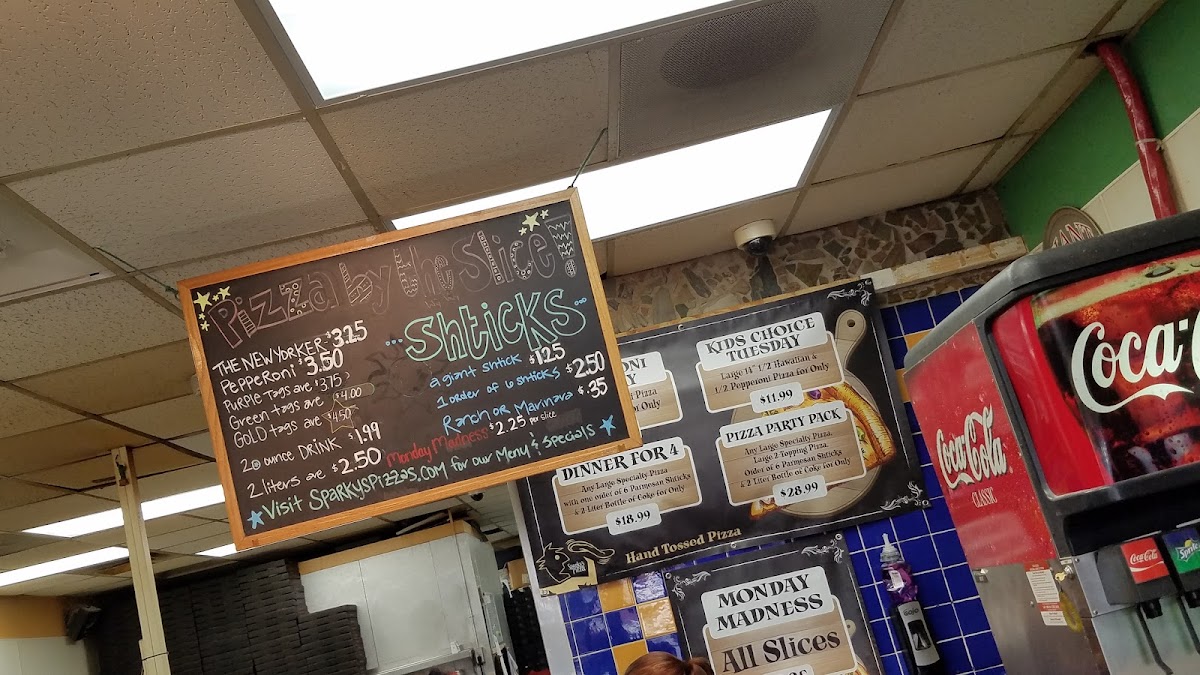 Pizza by the Slice!
THE NEW YORKER $3.25
PePPeRoni $3.50
PURPLE Tags are $3.75
Green tags are $4.00
GOLD tags are $4.50
20 ounce DRINK $1.99
2 liters are $2.50
...Shticks...
a giant shtick $1.25
1 order of 6 shticks $2.50
Ranch or Marinara $.35
Monday Madness $2.25 per slice
Visit SPARKYSPIZZAS.COM for our Menu & Specials
KIDS CHOICE
TUESDAY
Large 14" 1/2 Hawaiian &
1/2 Pepperoni Pizza for Only
$11.99
DINNER FOR 4
Any Large Specialty Pizza
with one order of 6 Parmesan Shticks
& 2 Liter Bottle of Coke for Only
$18.99
PIZZA PARTY PACK
Any Large Specialty Pizza,
Large 2 Topping Pizza,
Order of 6 Parmesan Shticks
& 2 Liter Bottle of Coke for Only
$28.99
Hand Tossed Pizza
MONDAY
MADNESS
All Slices
Coca-Cola
CLASSIC
Coca-C
Coca-Cola
Sprite